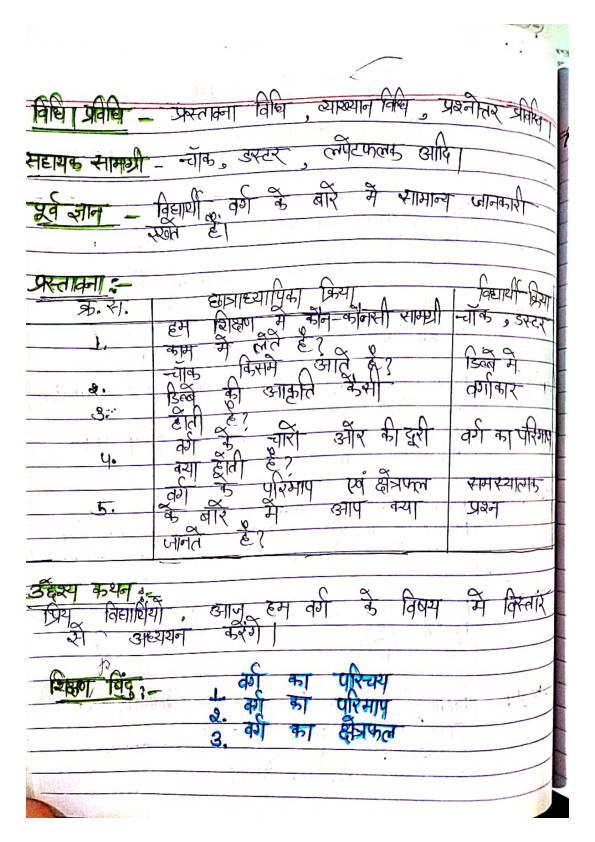 विधि। प्रविधि - प्रस्तावना विधि, व्याख्यान विधि, प्रश्नोत्तर प्रविधि।
सहायक सामग्री - चॉक, डस्टर, लपेटफलक आदि।
पूर्व ज्ञान - विद्यार्थी वर्ग के बारे में सामान्य जानकारी
रखते हैं।
प्रस्तावना :-
क्र. स. छात्राध्यापिका क्रिया विद्यार्थी क्रिया
1. हम शिक्षण में कौन-कौनसी सामग्री चॉक, डस्टर
काम में लेते है?
2. चॉक किसमे आते है? डिब्बे में
3. डिब्बे की आकृति कैसी वर्गाकार
होती है?
4. वर्ग के चारों ओर की दूरी वर्ग का परिमाप
क्या होती है?
5. वर्ग के परिमाप एवं क्षेत्रफल समस्यात्मक
के बारे में आप क्या प्रश्न
जानते है?
उद्देश्य कथन :-
प्रिय विद्यार्थियों, आज हम वर्ग के विषय में विस्तार
से अध्ययन करेंगे।
शिक्षण बिंदु :-
1. वर्ग का परिचय
2. वर्ग का परिमाप
3. वर्ग का क्षेत्रफल